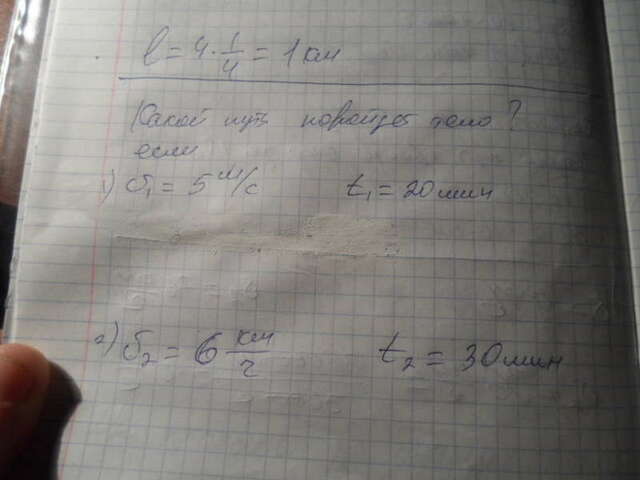 l = 4 · 1/4 = 1 км
Какой путь пройдет тело?
если
1) υ₁ = 5 м/с t₁ = 20 мин
2) υ₂ = 6 км/ч t₂ = 30 мин